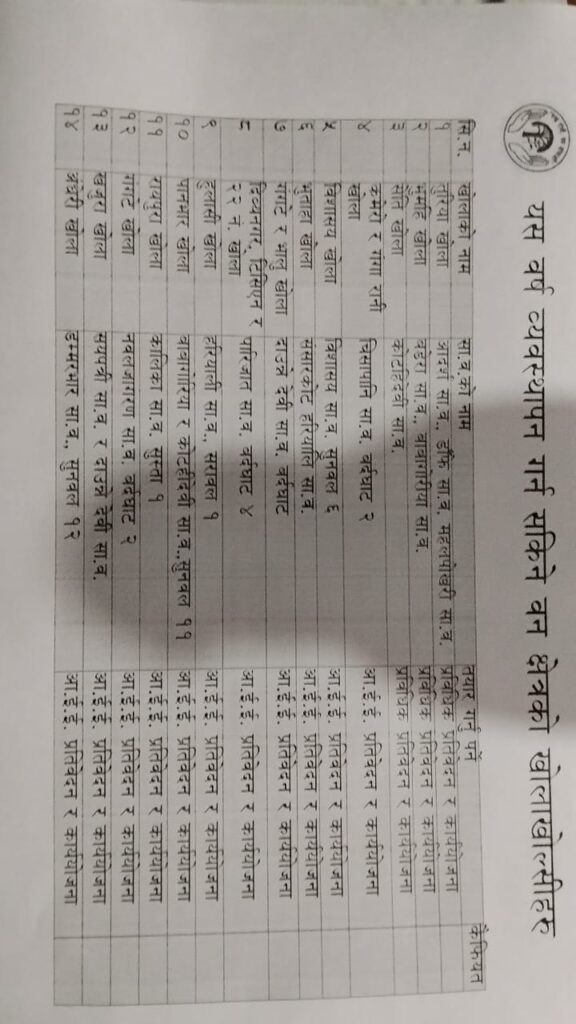 यस वर्ष व्यवस्थापन गर्न सकिने वन क्षेत्रको खोलाखोल्सीहरु
सि.न. खोलाको नाम सा.व.को नाम तयार गर्नु पर्ने कैफियत
१ तुरिया खोला आदर्श सा.व., डाँफे सा.व. महलपोखरी सा.व. प्राविधिक प्रतिवेदन र कार्ययोजना
२ भुमहि खोला बहेरा सा.व., बाघामोरिया सा.व. प्राविधिक प्रतिवेदन र कार्ययोजना
३ सेति खोला कोटहिदेवी सा.व. प्राविधिक प्रतिवेदन र कार्ययोजना
४ कमेरो र गंगा रानी खोला चिसापानि सा.व. बर्दघाट २ आ.ई.ई. प्रतिवेदन र कार्ययोजना
५ विशासय खोला विशासय सा.व. सुनवल ६ आ.ई.ई. प्रतिवेदन र कार्ययोजना
६ भुताहा खोला संसारकोट हरियालि सा.व. आ.ई.ई. प्रतिवेदन र कार्ययोजना
७ गंगटे र भालु खोला दाउन्ने देवी सा.व. बर्दघाट आ.ई.ई. प्रतिवेदन र कार्ययोजना
८ दिव्यनगर, टिसिएन र २२ नं. खोला परिजात सा.व. बर्दघाट ४ आ.ई.ई. प्रतिवेदन र कार्ययोजना
९ हुलासी खोला हरियाली सा.व., सरावल १ आ.ई.ई. प्रतिवेदन र कार्ययोजना
१० पानभार खोला बाघामोरिया र कोटहीदेवी सा.व.,सुनवल ११ आ.ई.ई. प्रतिवेदन र कार्ययोजना
११ रायपुरा खोला कालिका सा.व. सुस्ता १ आ.ई.ई. प्रतिवेदन र कार्ययोजना
१२ गंगटे खोला नवलजागरण सा.व. बर्दघाट २ आ.ई.ई. प्रतिवेदन र कार्ययोजना
१३ खजुरा खोला सयपत्री सा.व. र दाउन्ने देवी सा.व. आ.ई.ई. प्रतिवेदन र कार्ययोजना
१४ अंधेरी खोला डम्मरभार सा.व., सुनवल १२ आ.ई.ई. प्रतिवेदन र कार्ययोजना